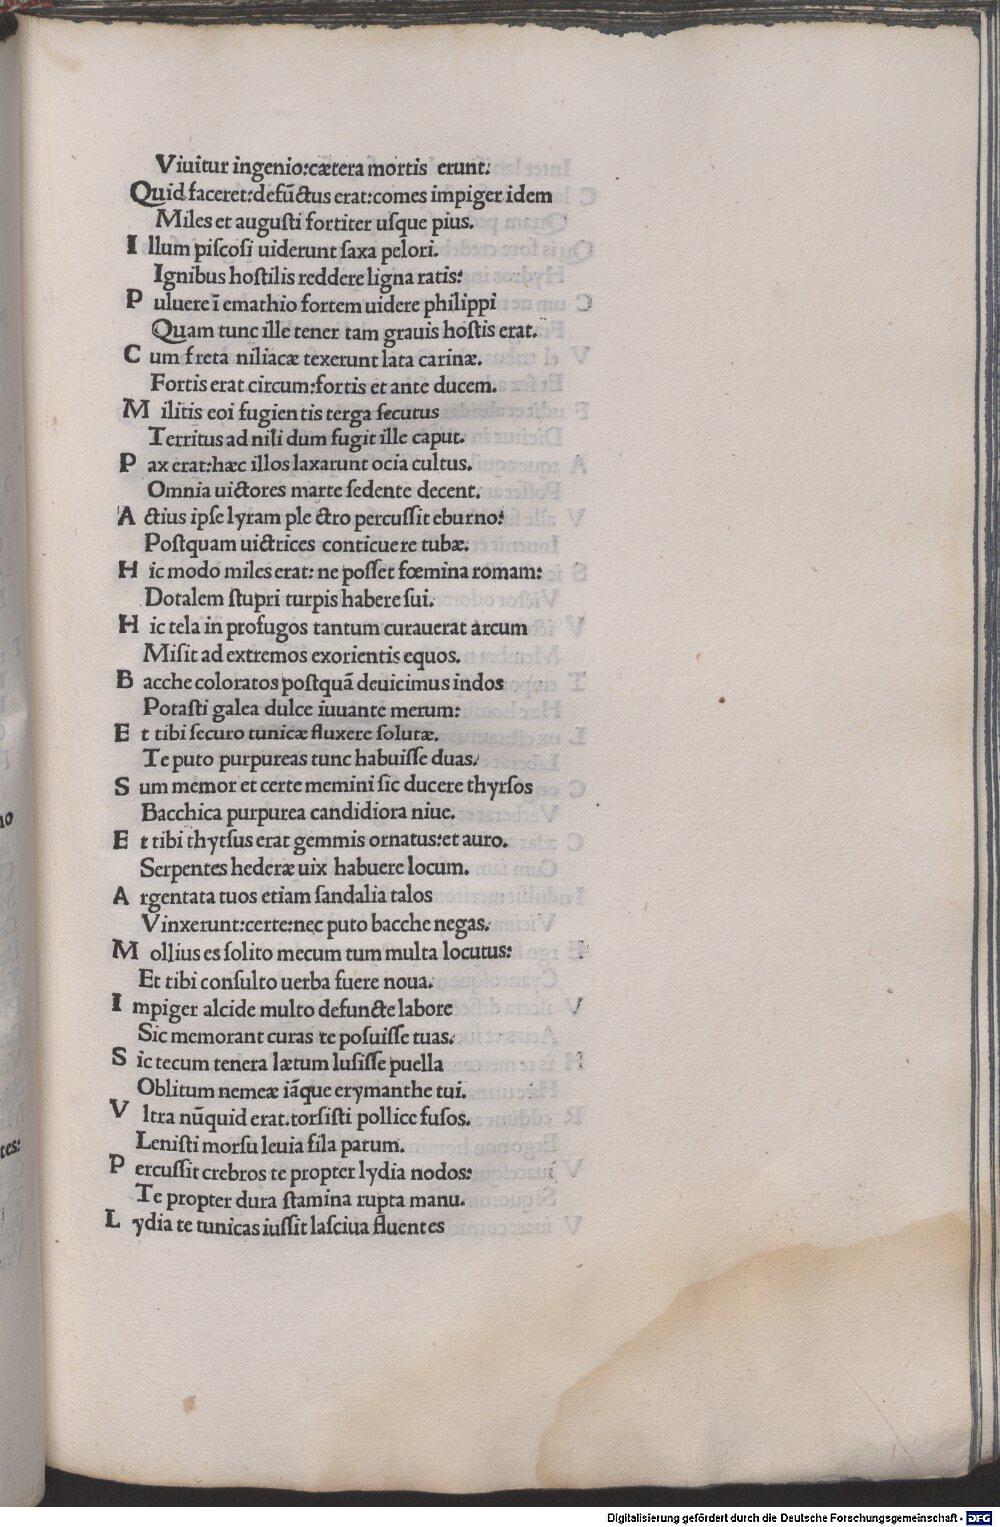 Viuitur ingenio:cætera mortis erunt:
Quid faceret:defūctus erat:comes impiger idem
Miles et augusti fortiter uſque pius.
I llum piſcoſi uiderunt ſaxa pelori.
Ignibus hoſtilis reddere ligna ratis:
P uluere ī emathio fortem uidere philippi
Quam tunc ille tener tam grauis hoſtis erat.
C um freta niliacæ texerunt lata carinæ.
Fortis erat circum:fortis et ante ducem.
M ilitis eoi fugientis terga ſecutus
Territus ad nili dum fugit ille caput.
P ax erat:hæc illos laxarunt ocia cultus.
Omnia uictores marte ſedente decent.
A ctius ipſe lyram plectro percuſſit eburno:
Poſtquam uictrices conticuere tubæ.
H ic modo miles erat: ne poſſet fœmina romam:
Dotalem ſtupri turpis habere ſui.
H ic tela in profugos tantum curauerat arcum
Miſit ad extremos exorientis equos.
B acche coloratos poſtquā deuicimus indos
Potaſti galea dulce iuuante merum:
E t tibi ſecuro tunicæ fluxere ſolutæ.
Te puto purpureas tunc habuiſſe duas.
S um memor et certe memini ſic ducere thyrſos
Bacchica purpurea candidiora niue.
E t tibi thytſus erat gemmis ornatus:et auro.
Serpentes hederæ uix habuere locum.
A rgentata tuos etiam ſandalia talos
Vinxerunt:certe:nec puto bacche negas.
M ollius es ſolito mecum tum multa locutus:
Et tibi conſulto uerba fuere noua.
I mpiger alcide multo defuncte labore
Sic memorant curas te poſuiſſe tuas.
S ic tecum tenera lætum luſiſſe puella
Oblitum nemeæ iāque erymanthe tui.
V ltra nūquid erat.torſiſti pollice fuſos.
Leniſti morſu leuia fila parum.
P ercuſſit crebros te propter lydia nodos:
Te propter dura ſtamina rupta manu.
L ydia te tunicas iuſſit laſciua fluentes
Digitalisierung gefördert durch die Deutsche Forschungsgemeinschaft - DFG